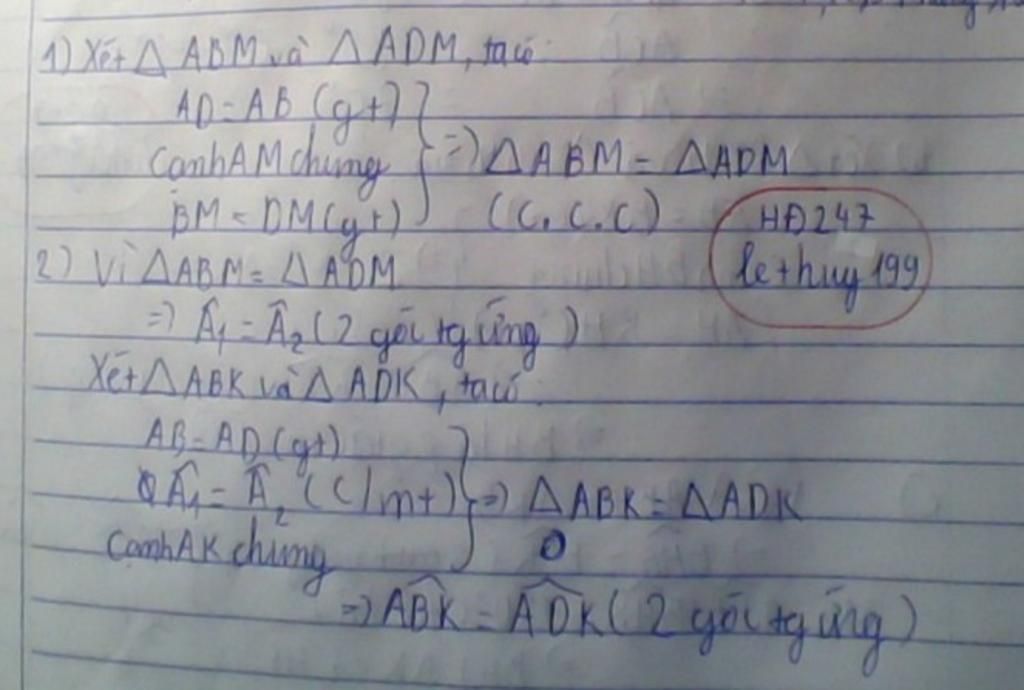 1) Xét △ ABM và △ ADM, ta có
AD = AB (gt)
Cạnh AM chung } => △ ABM = △ADM
BM = DM (gt) (C.C.C)
HĐ247
lethuy199
2) Vì △ABM = △ ADM
=> Â₁ = Â₂ (2 góc tg ứng)
Xét △ABK và △ ADK, ta có
AB = AD (gt)
Â₁ = Â₂ (C/mt) } => △ ABK = △ADK
Cạnh AK chung
=> ABK = ADK (2 góc tg ứng)